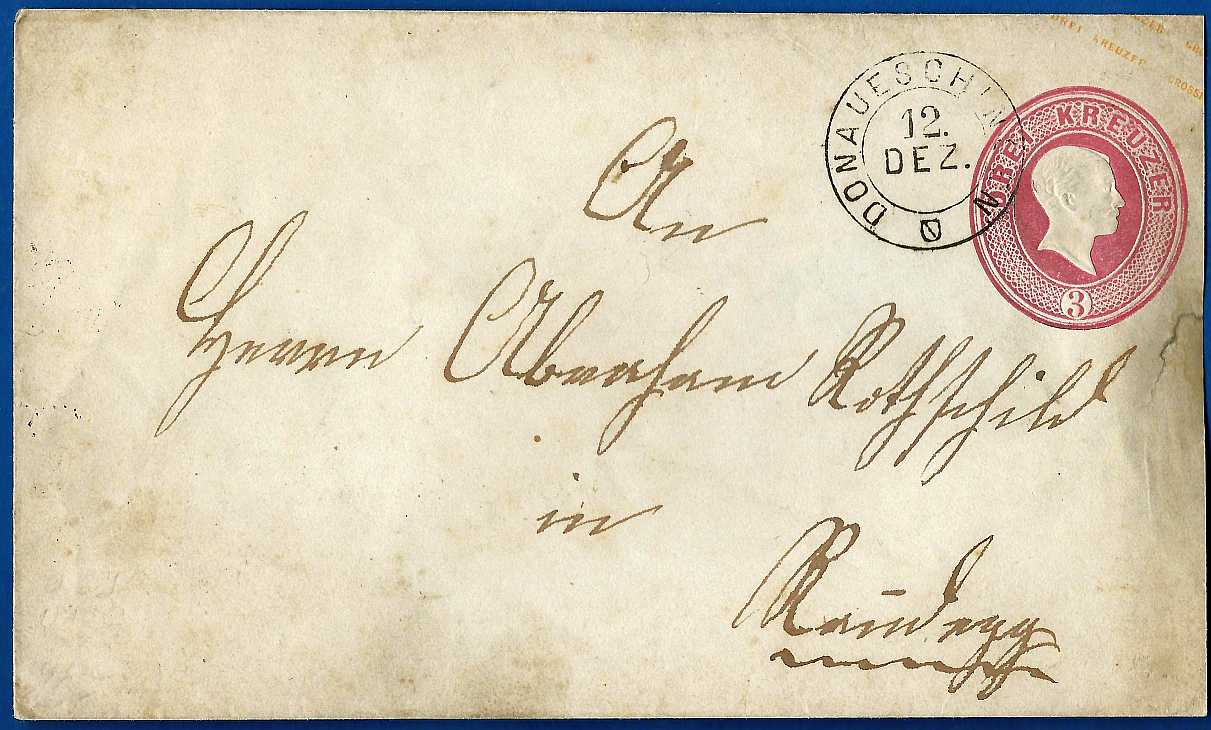 DREI KREUZER GROSSH
DONAUESCHINGEN
12.
DEZ.
DREI KREUZER
3
An
Herrn Abraham Rothschild
in
Randegg